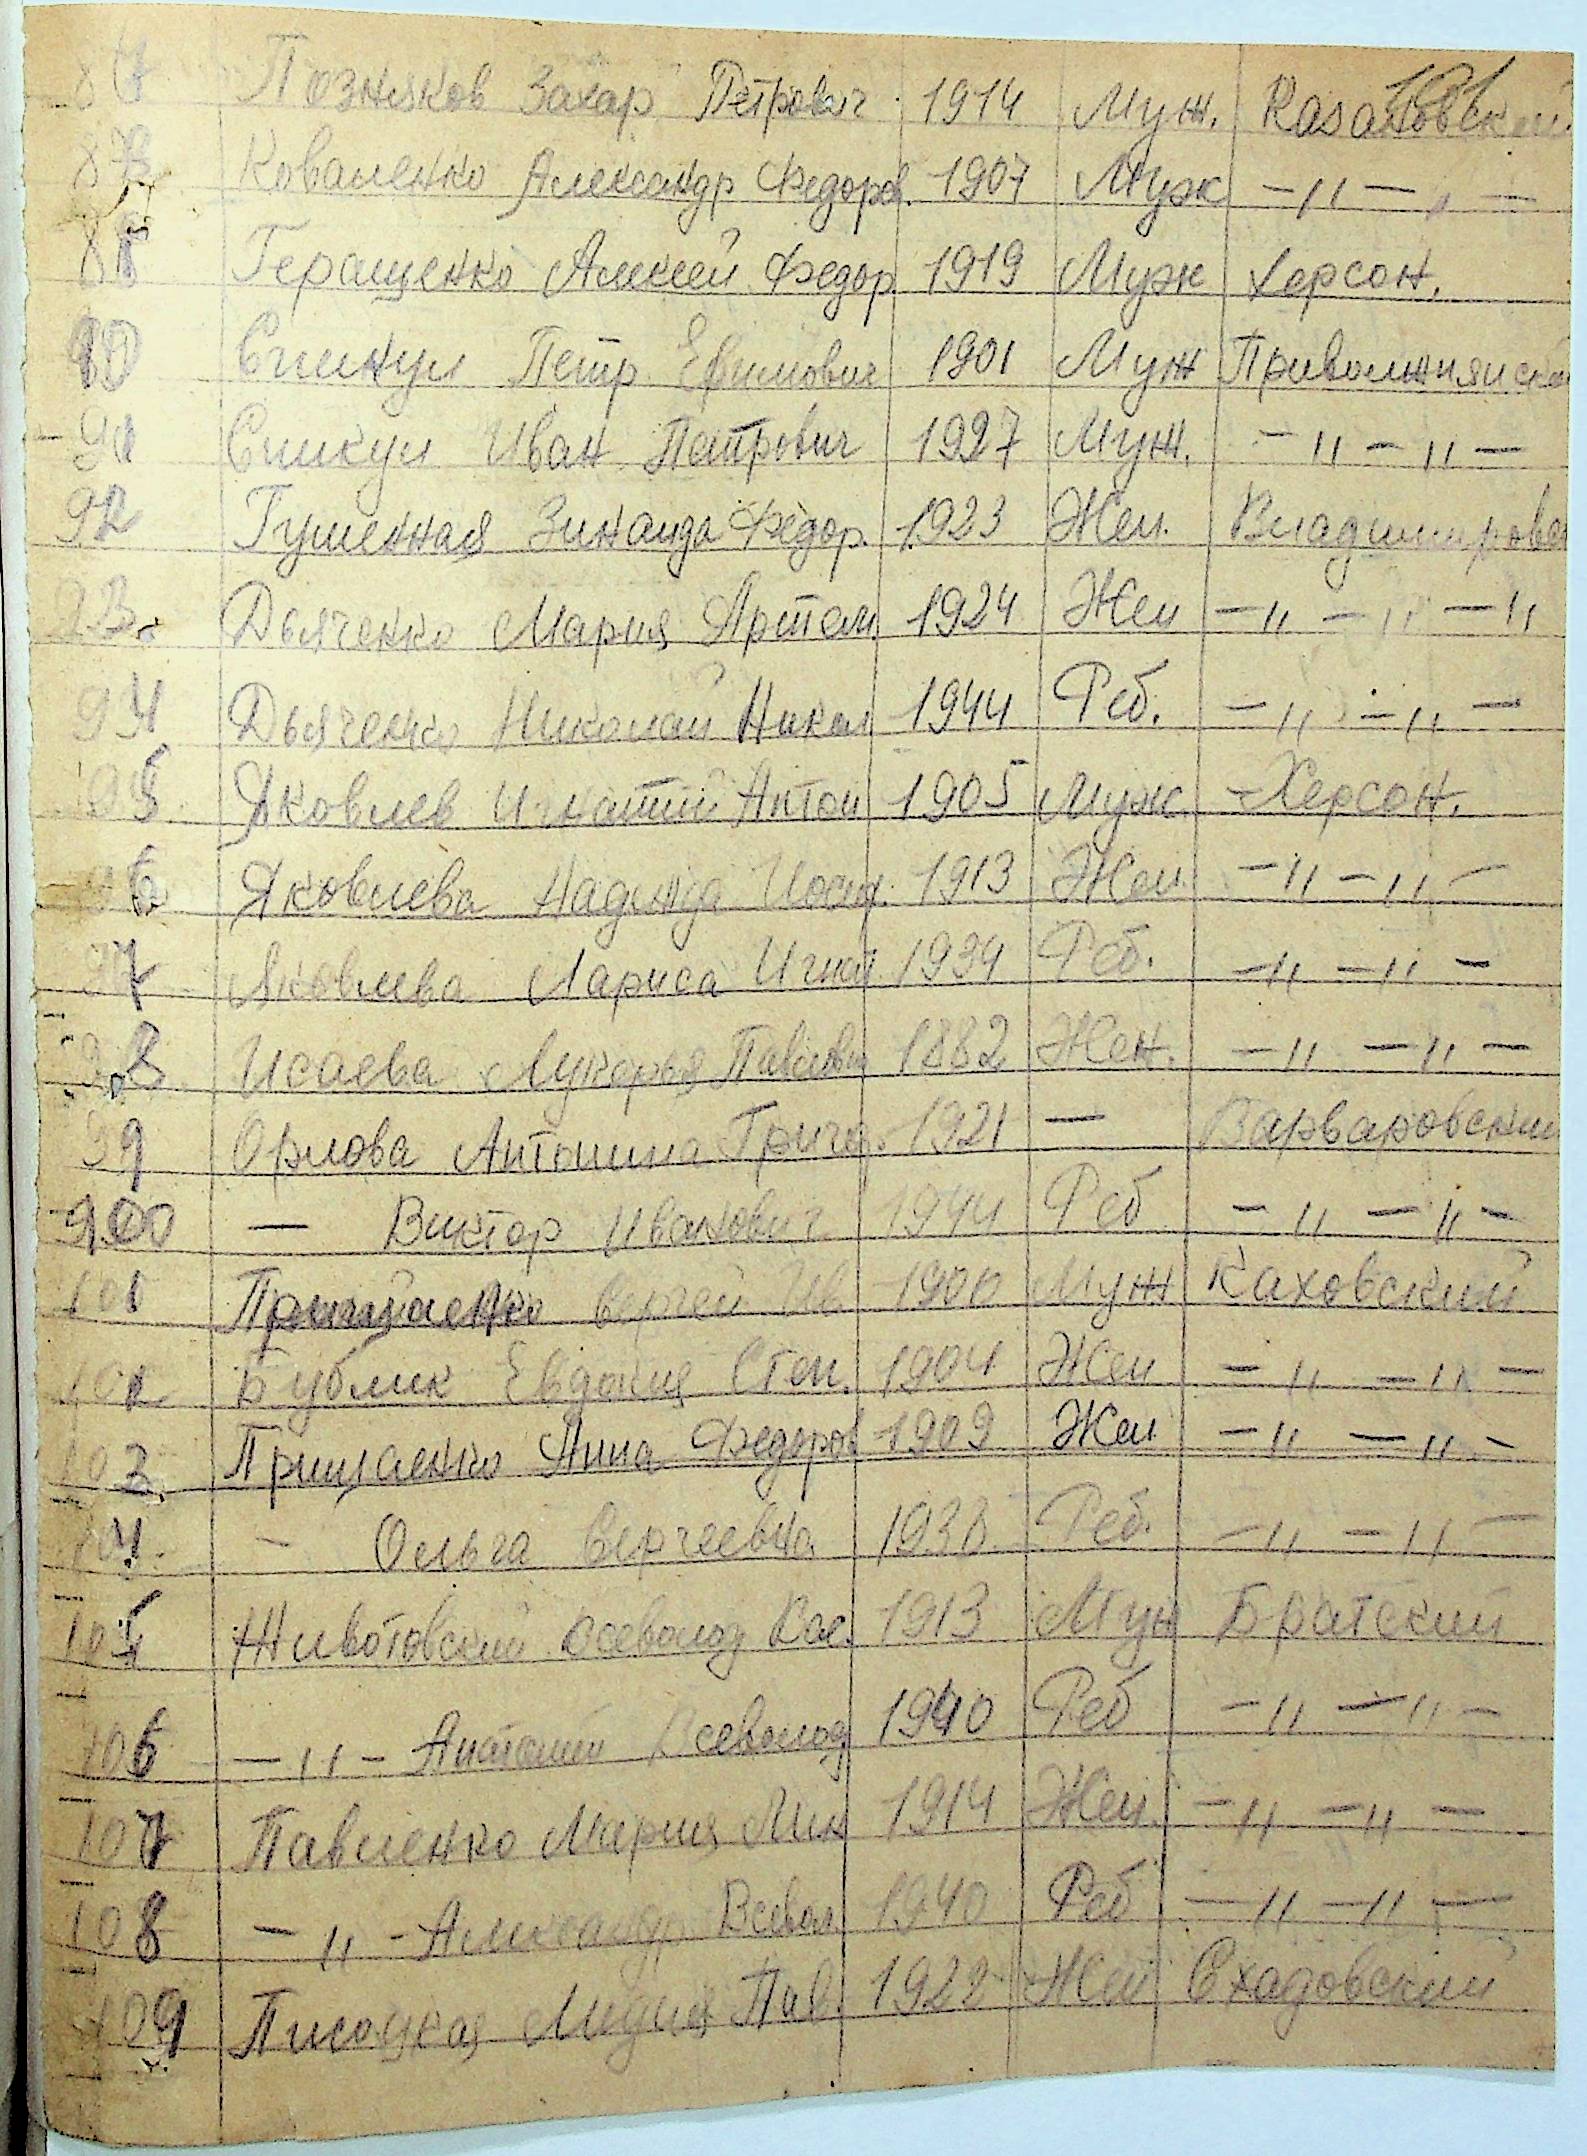 87 Позняков Захар Петрович 1914 Муж. Казановский
88 Коваленко Александр Федоров. 1907 Муж -"-"-
Геращенко Алексей Федор 1919 Муж Херсон.
90 Сникул Петр Ефимович 1901 Муж
91 Сникул Иван Петрович 1927 Муж. -"-"-
92 Гуменная Зинаида Федор. 1923 Жен. Владимировск
93. Дьяченко Мария Артем 1924 Жен -"-"-"
94 Дьяченко Николай Никол 1944 Реб. -"-"-
95 Яковлев Игнатий Антон 1905 Муж -Херсон.
96 Яковлева Надежда Иосиф. 1913 Жен. -"-"-
97 Яковлева Лариса Игнат 1934 Реб. -"-"-
98 Исаева Лукерья Павловн 1882 Жен. -"-"-
99 Орлова Антонина Григор. 1921 — Варваровский
900 — Виктор Иванович 1944 Реб -"-"-
101 Сергей Ив 1900 Муж Каховский
102 Бублик Евдокия Степ. 1904 Жен -"-"-
103. Прищаенко Анна Федоров 1909 Жен -"-"-
104. - Ольга Сергеевна 1938 Реб. -"-"-
105 Животовский Всеволод 1913 Муж Братский
106 -"- Анатолий Всеволод 1940 Реб -"-"-
107 Павленко Мария Мин 1914 Жен. -"-"-
108 -"- Александр Всевол. 1940 Реб -"-"-
109 Писоцкая Лидия Пав. 1922 Жен Скадовский